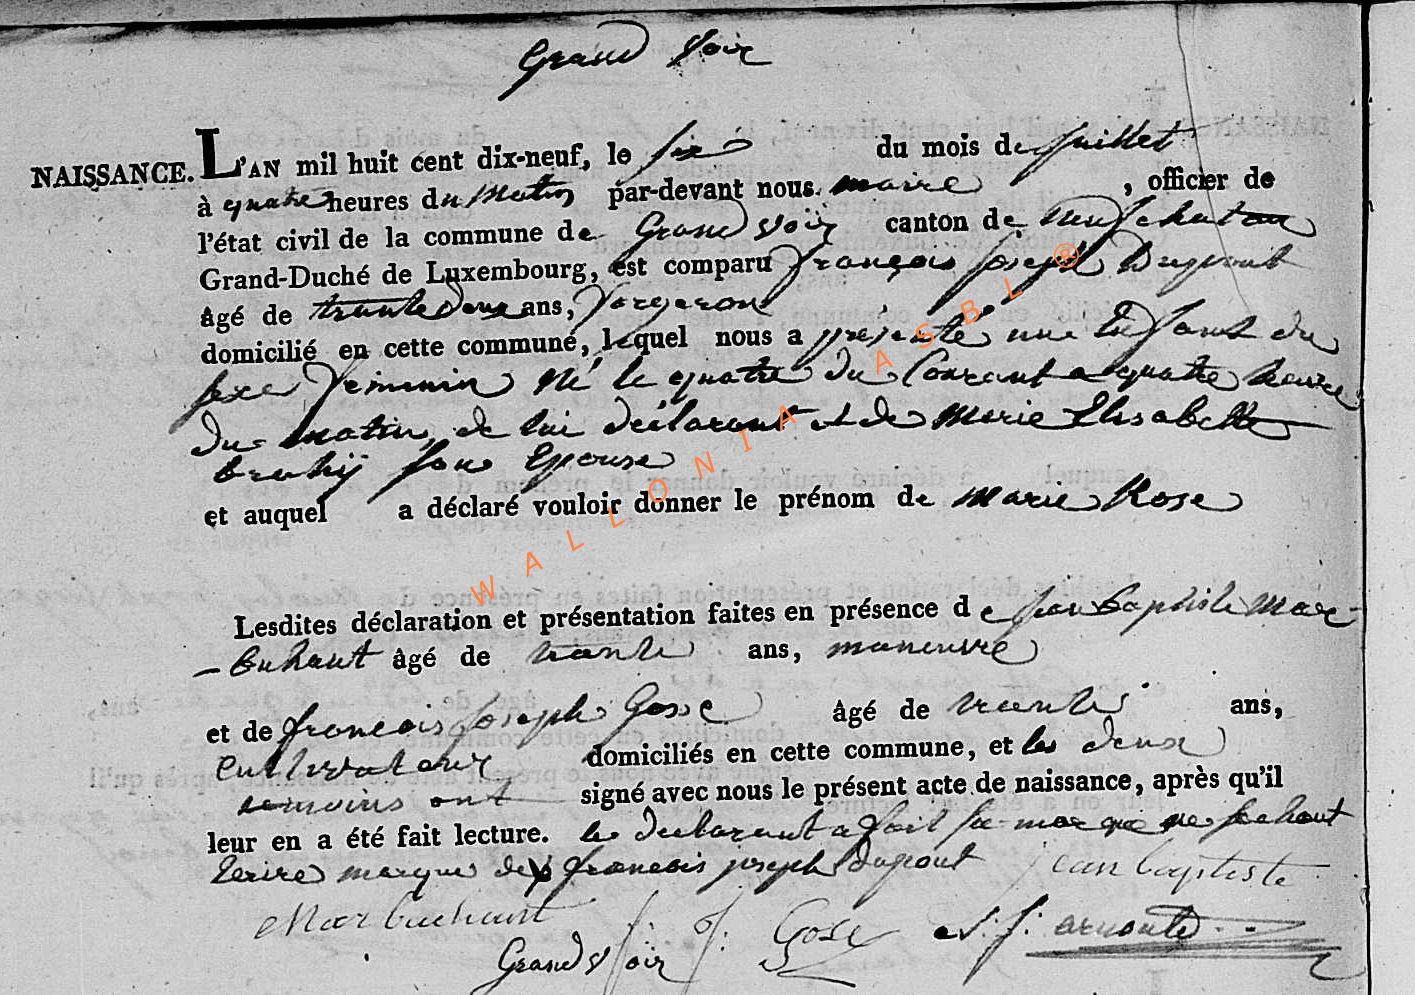 Grand Voir
NAISSANCE. L'AN mil huit cent dix-neuf, le six du mois de juillet
à quatre heures du Matin par-devant nous maire, officier de
l'état civil de la commune de Grand Voir canton de neufchateau
Grand-Duché de Luxembourg, est comparu françois joseph Dupont
âgé de trente deux ans, forgeron
domicilié en cette commune, lequel nous a presenté une Enfant du
sexe feminin Né le quatre du Courant a quatre heure
du matin, de lui déclarant et de Marie Elisabette
son Epouse
et auquel a déclaré vouloir donner le prénom de Marie Rose
Lesdites déclaration et présentation faites en présence de jean Baptiste Mar-
-buhant âgé de trente ans, maneuvre
et de francois joseph Gosse âgé de trente ans,
Cultivateur domiciliés en cette commune, et les deux
temoins ont signé avec nous le présent acte de naissance, après qu'il
leur en a été fait lecture. le declarant a fait sa marque ne sachant
Ecrire marque de X francois joseph Dupont jean baptiste
Marbuehant f. j. Gose arnould
Grand Voir
WALLONIA ASBL ®